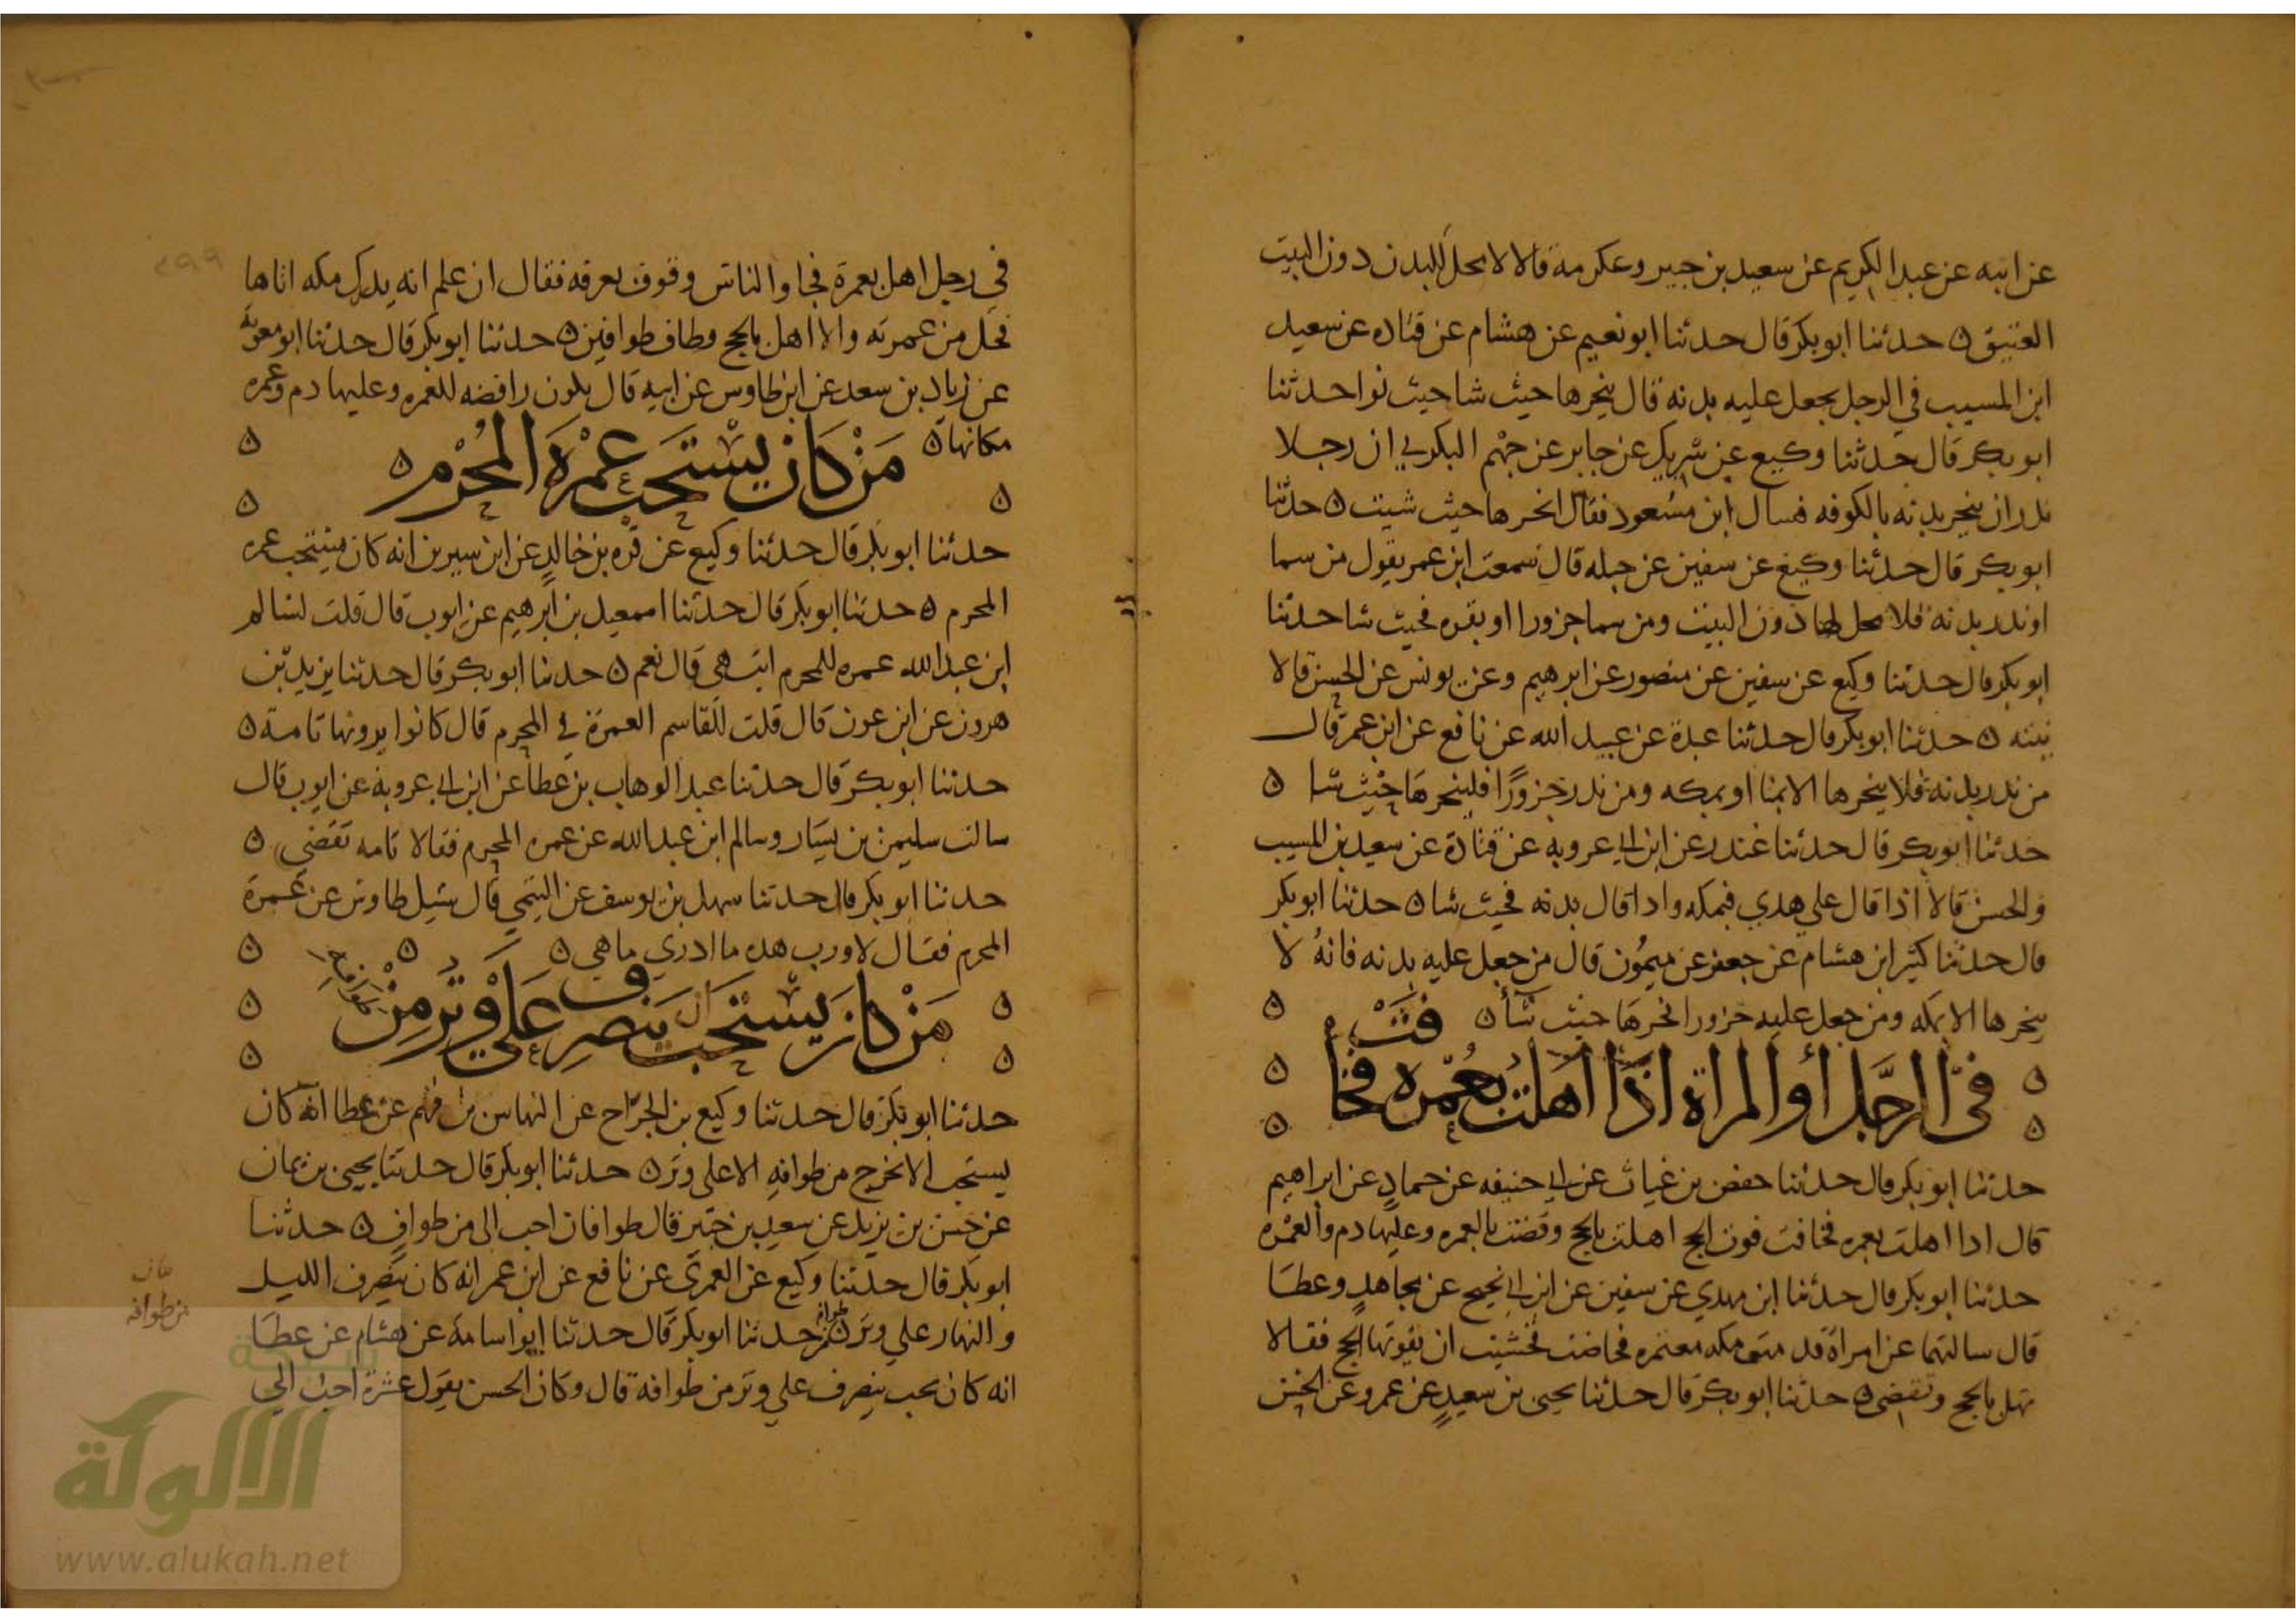 عن ابيه عن عبد الكريم عن سعيد بن جبير وعكرمة قالا لا تحل البدن دون البيت
العتيق ه حدثنا ابو بكر قال حدثنا ابو نعيم عن هشام عن قتاده عن سعيد
ابن المسيب في الرجل يجعل عليه بدنه قال ينحرها حيث شا حيث نوا حدثنا
ابو بكر قال حدثنا وكيع عن شريك عن جابر عن جهم البكري ان رجلا
نذر ان ينحر بدنه بالكوفه فسال ابن مسعود فقال انحرها حيث شيت ه حدثنا
ابو بكر قال حدثنا وكيع عن سفين عن جبله قال سمعت ابن عمر يقول من سما
او نذر بدنه فلا محل لها دون البيت ومن سما جزورا او بقره فحيث شا حدثنا
ابو بكر قال حدثنا وكيع عن سفين عن منصور عن ابرهيم وعن يونس عن الحسن قالا
نيته ه حدثنا ابو بكر قال حدثنا عبدة عن عبيد الله عن نافع عن ابن عمر قال
من نذر بدنه فلا ينحرها الا بمنا او بمكه ومن نذر جزورًا فلينحرها حيث شا ه
حدثنا ابو بكر قال حدثنا غندر عن ابن ابي عروبه عن قتادة عن سعيد بن المسيب
والحسن قالا اذا قال علي هدي فبمكه واذا قال بدنه فحيث شا ه حدثنا ابو بكر
قال حدثنا كثير ابن هشام عن جعفر عن ميمون قال من جعل عليه بدنه فانه لا
ينحرها الا بمكه ومن جعل عليه جزورا نحرها حيث شا ه
في الرجل او المراة اذا اهلت بعمره فخافت
حدثنا ابو بكر قال حدثنا حفص بن غياث عن ابي حنيفه عن حماد عن ابراهيم
قال اذا اهلت بعمره فخافت فوت الحج اهلت بالحج وقضت بالعمره وعليها دم والعمره
حدثنا ابو بكر قال حدثنا ابن مهدي عن سفين عن ابن ابي نجيح عن مجاهد وعطا
قال سالتهما عن امراة قدمت مكه معتمره فحاضت فخشيت ان يفوتها الحج فقالا
تهل بالحج وتقضي ه حدثنا ابو بكر قال حدثنا يحيى بن سعيد عن عمرو عن الحسن
في رجل اهل بعمرة فجا والناس وقوف بعرفه فقال ان علم انه يدرك مكه اتاها
فحل من عمرته والا اهل بالحج وطاف طوافين ه حدثنا ابو بكر قال حدثنا ابو معويه
عن زياد بن سعد عن ابن طاوس عن ابيه قال يكون رافضه للعمره وعليها دم وعمره
مكانها ه
من كان يستحب عمرة المحرم ه
حدثنا ابو بكر قال حدثنا وكيع عن قره بن خالد عن ابن سيرين انه كان يستحب عمره
المحرم ه حدثنا ابو بكر قال حدثنا اسمعيل بن ابرهيم عن ايوب قال قلت لسالم
ابن عبد الله عمره للمحرم اتامه هي قال نعم ه حدثنا ابو بكر قال حدثنا يزيد بن
هرون عن ابن عون قال قلت للقاسم العمرة في المحرم قال كانوا يرونها تامة ه
حدثنا ابو بكر قال حدثنا عبد الوهاب بن عطا عن ابن ابي عروبة عن ايوب قال
سالت سليمن بن يسار وسالم ابن عبد الله عن عمره المحرم فقالا تامه تقضي ه
حدثنا ابو بكر قال حدثنا سهل بن يوسف عن التيمي قال سيل طاوس عن عمرة
المحرم فقال لا ورب هذه ما ادري ماهي ه
من كان يستحب ان ينصرف علي وتر من طوافه
حدثنا ابو بكر قال حدثنا وكيع بن الجراح عن النهاس بن قهم عن عطا انه كان
يستحب الا تخرج من طوافه الا على وتر ه حدثنا ابو بكر قال حدثنا يحيى بن يمان
عن حسن بن يزيد عن سعيد بن جبير قال طوافان احب الى من طواف ه حدثنا
ابو بكر قال حدثنا وكيع عن العمري عن نافع عن ابن عمر انه كان ينصرف الليل
والنهار علي وتر من طوافه حدثنا ابو بكر قال حدثنا ابو اسامة عن هشام عن عطا
انه كان يحب ينصرف علي وتر من طوافه قال وكان الحسن يقول عشرة احب الي
من طوافه
٢٩٩
الألوكة
www.alukah.net